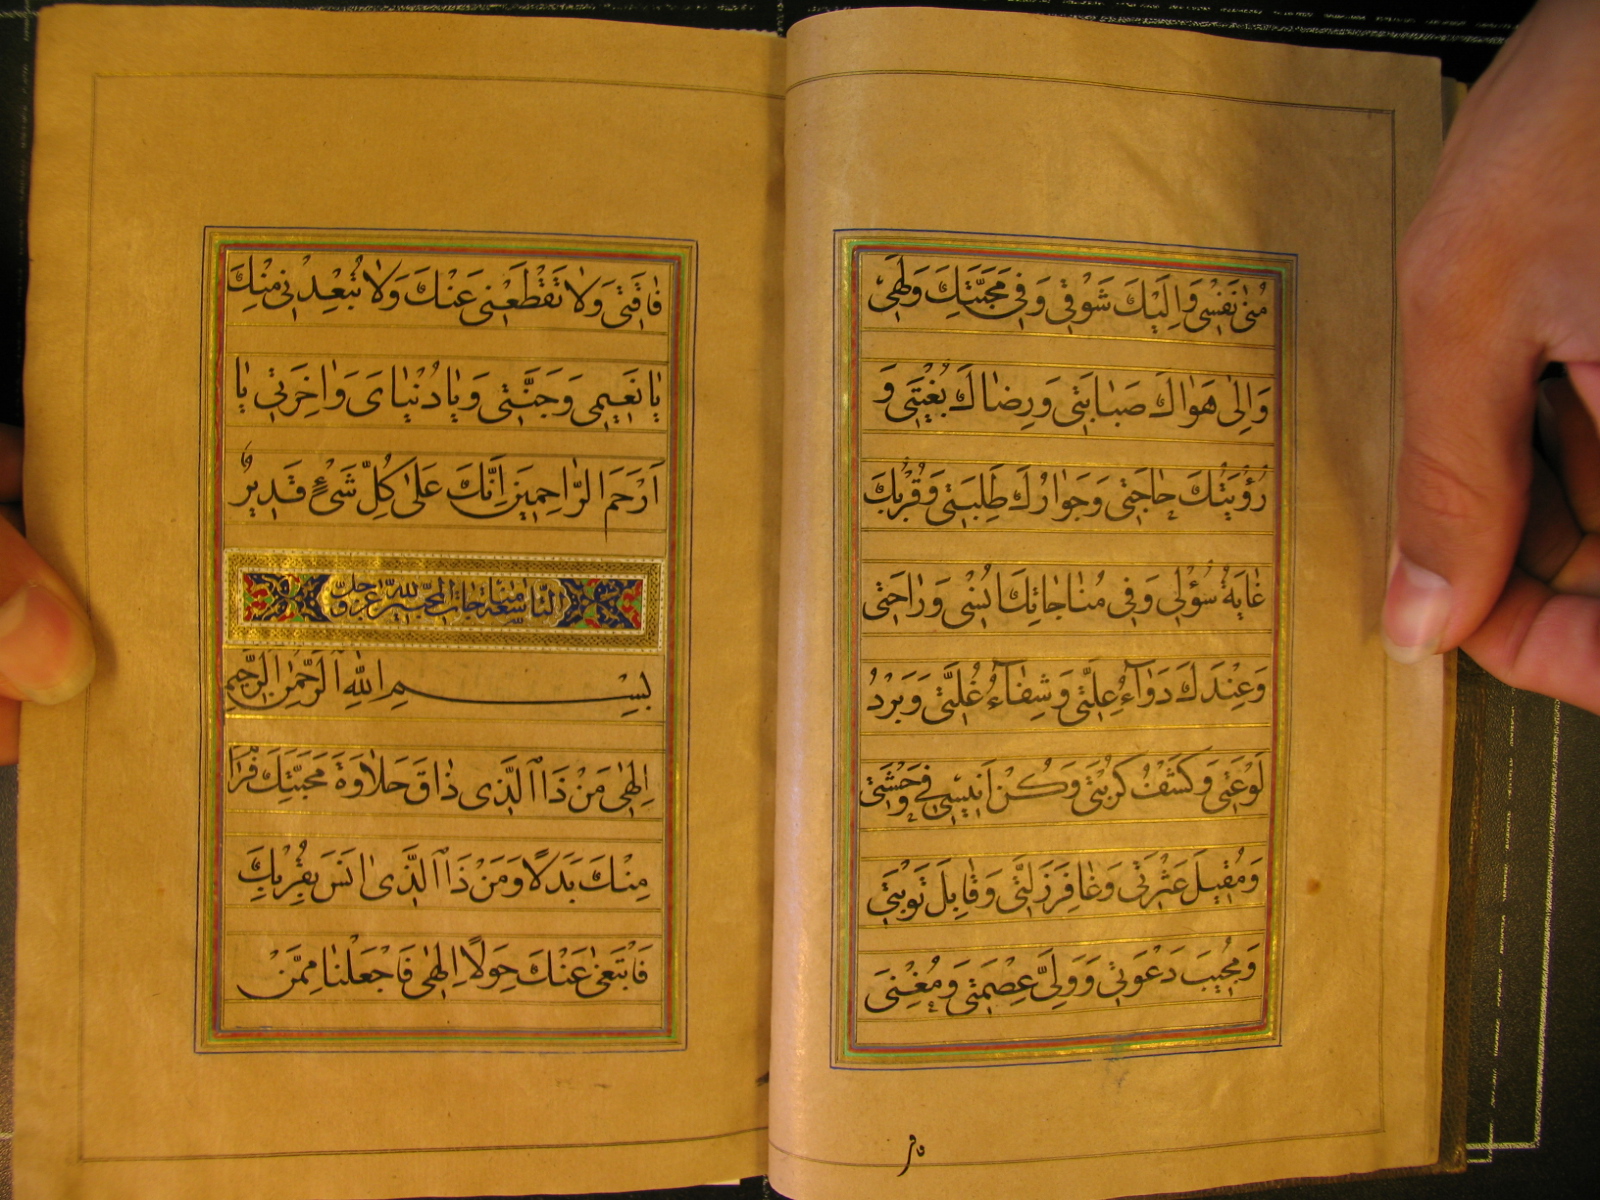 مُنٰی نَفْسٖی وَاِلَیْكَ شَوْقٖی وَفٖی مَحَبَّتِكَ وَلَهٖی
وَاِلٰی هَوٰاكَ صَبٰابَتٖی وَرِضٰاكَ بُغْیَتٖی وَ
رُؤْیَتُكَ حٰاجَتٖی وَجَوٰارُكَ طَلِبَتٖی وَقُرْبُكَ
غٰایَةُ سُؤْلٖی وَفٖی مُنٰاجٰاتِكَ اُنْسٖی وَرٰاحَتٖی
وَعِنْدَكَ دَوٰآءُ عِلَّتٖی وَشِفٰآءُ غُلَّتٖی وَبَرْدُ
لَوْعَتٖی وَكَشْفُ كُرْبَتٖی وَكُنْ اَنٖیسٖی فٖی وَحْشَتٖی
وَمُقٖیلَ عَثْرَتٖی وَغٰافِرَ زَلَّتٖی وَقٰابِلَ تَوْبَتٖی
وَمُجٖیبَ دَعْوَتٖی وَوَلِیَّ عِصْمَتٖی وَمُغْنِیَ
فاقَ
فٰاقَتٖی وَلاٰ تَقْطَعْنٖی عَنْكَ وَلاٰ تُبْعِدْنٖی مِنْكَ
یٰا نَعٖیمٖی وَجَنَّتٖی وَیٰا دُنْیٰایَ وَاٰخِرَتٖی یٰا
اَرْحَمَ الرّٰاحِمٖینَ اِنَّكَ عَلٰی كُلِّ شَیْءٍ قَدٖیرٌ
التاسعة مناجات المحبین لله عز وجل
بِسْمِ اللّٰهِ الرَّحْمٰنِ الرَّحٖیمِ
اِلٰهٖی مَنْ ذَا الَّذٖی ذٰاقَ حَلاٰوَةَ مَحَبَّتِكَ فَرٰامَ
مِنْكَ بَدَلاً وَمَنْ ذَا الَّذٖی اَنَسَ بِقُرْبِكَ
فَابْتَغٰی عَنْكَ حِوَلاً اِلٰهٖی فَاجْعَلْنٰا مِمَّنْ